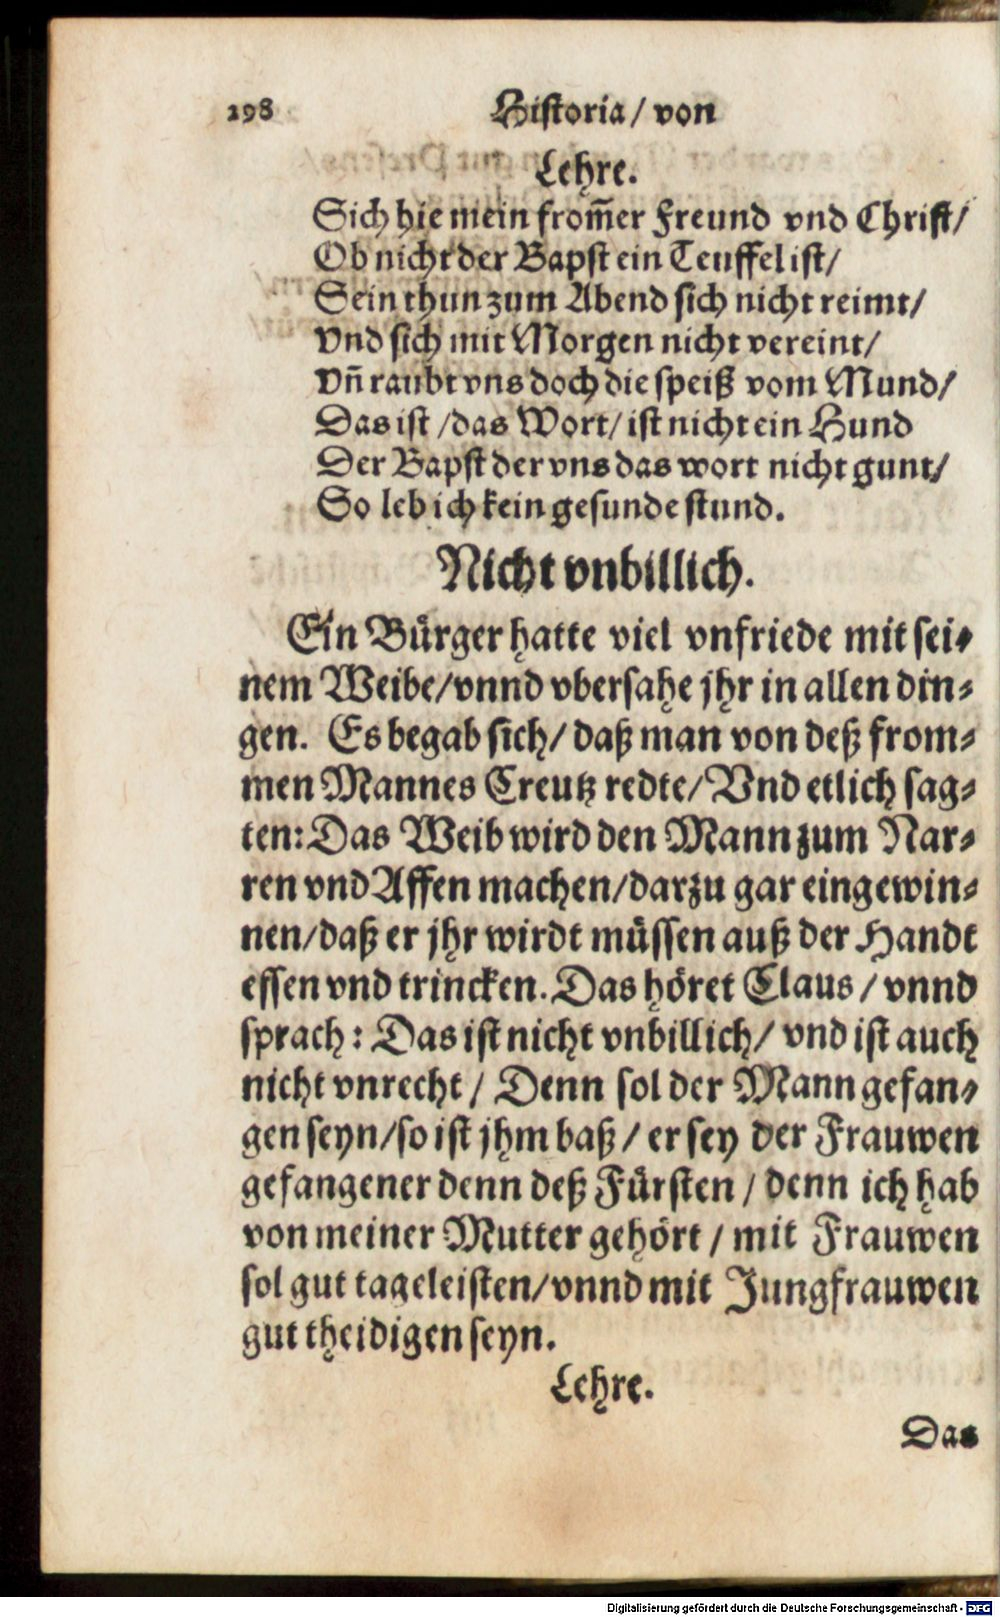 198 Historia / von
Lehre.
Sich hie mein from̃er Freund vnd Christ/
Ob nicht der Bapst ein Teuffel ist/
Sein thun zum Abend sich nicht reimt/
Vnd sich mit Morgen nicht vereint/
Vñ raubt vns doch die speiß vom Mund/
Das ist /das Wort/ ist nicht ein Hund
Der Bapst der vns das wort nicht gunt/
So leb ich kein gesunde stund.
Nicht vnbillich.
Ein Bürger hatte viel vnfriede mit sei-
nem Weibe/vnnd vbersahe jhr in allen din-
gen. Es begab sich/ daß man von deß from-
men Mannes Creutz redte/ Vnd etlich sag-
ten: Das Weib wird den Mann zum Nar-
ren vnd Affen machen/darzu gar eingewin-
nen/daß er jhr wirdt müssen auß der Handt
essen vnd trincken. Das höret Claus / vnnd
sprach: Das ist nicht vnbillich/ vnd ist auch
nicht vnrecht / Denn sol der Mann gefan-
gen seyn/so ist jhm baß / er sey der Frauwen
gefangener denn deß Fürsten / denn ich hab
von meiner Mutter gehört / mit Frauwen
sol gut tageleisten/vnnd mit Jungfrauwen
gut theidigen seyn.
Lehre.
Das
Digitalisierung gefördert durch die Deutsche Forschungsgemeinschaft - DFG